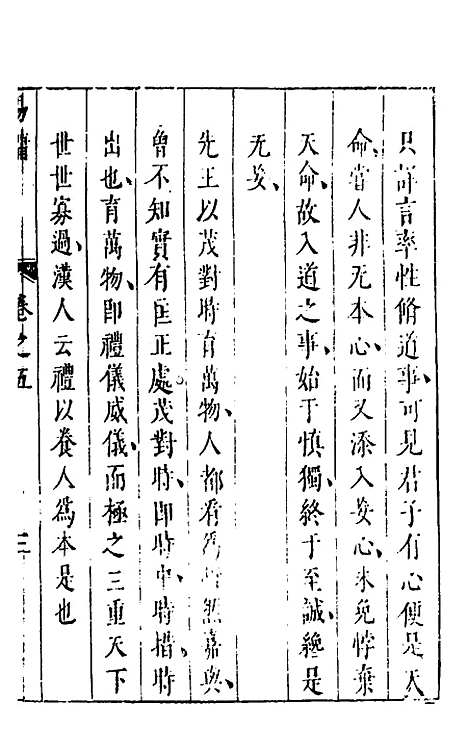 只詳言率性脩道事、可見君子有心便是天
命、當人非无本心、而又添入妄心、未免悖棄
天命、故入道之事、始于慎獨、終于至誠、纔是
无妄、
先王以茂對時育萬物、人都看爲 然嘉與、
曾不知實有匡正處、茂對時、即時中、時措、時
出也、育萬物、即禮儀威儀、而極之三重天下
世世寡過、漢人云禮以養人爲本是也
易 卷之五 三